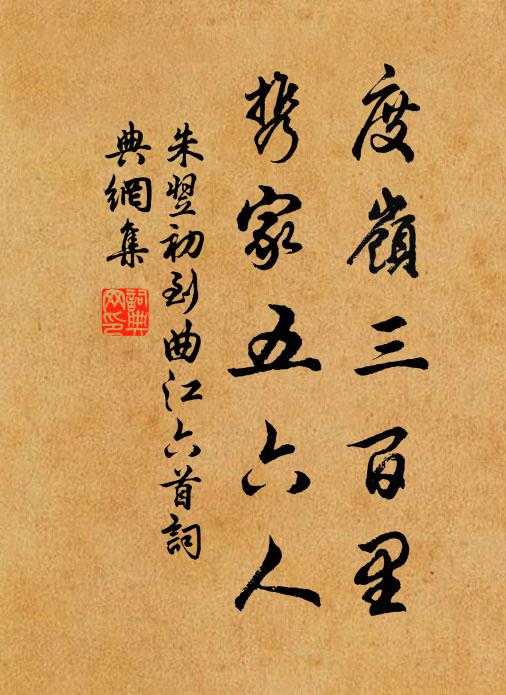 度嶺三百里
携家五六人
朱翌初到曲江六首詞
典網集
詞典網印